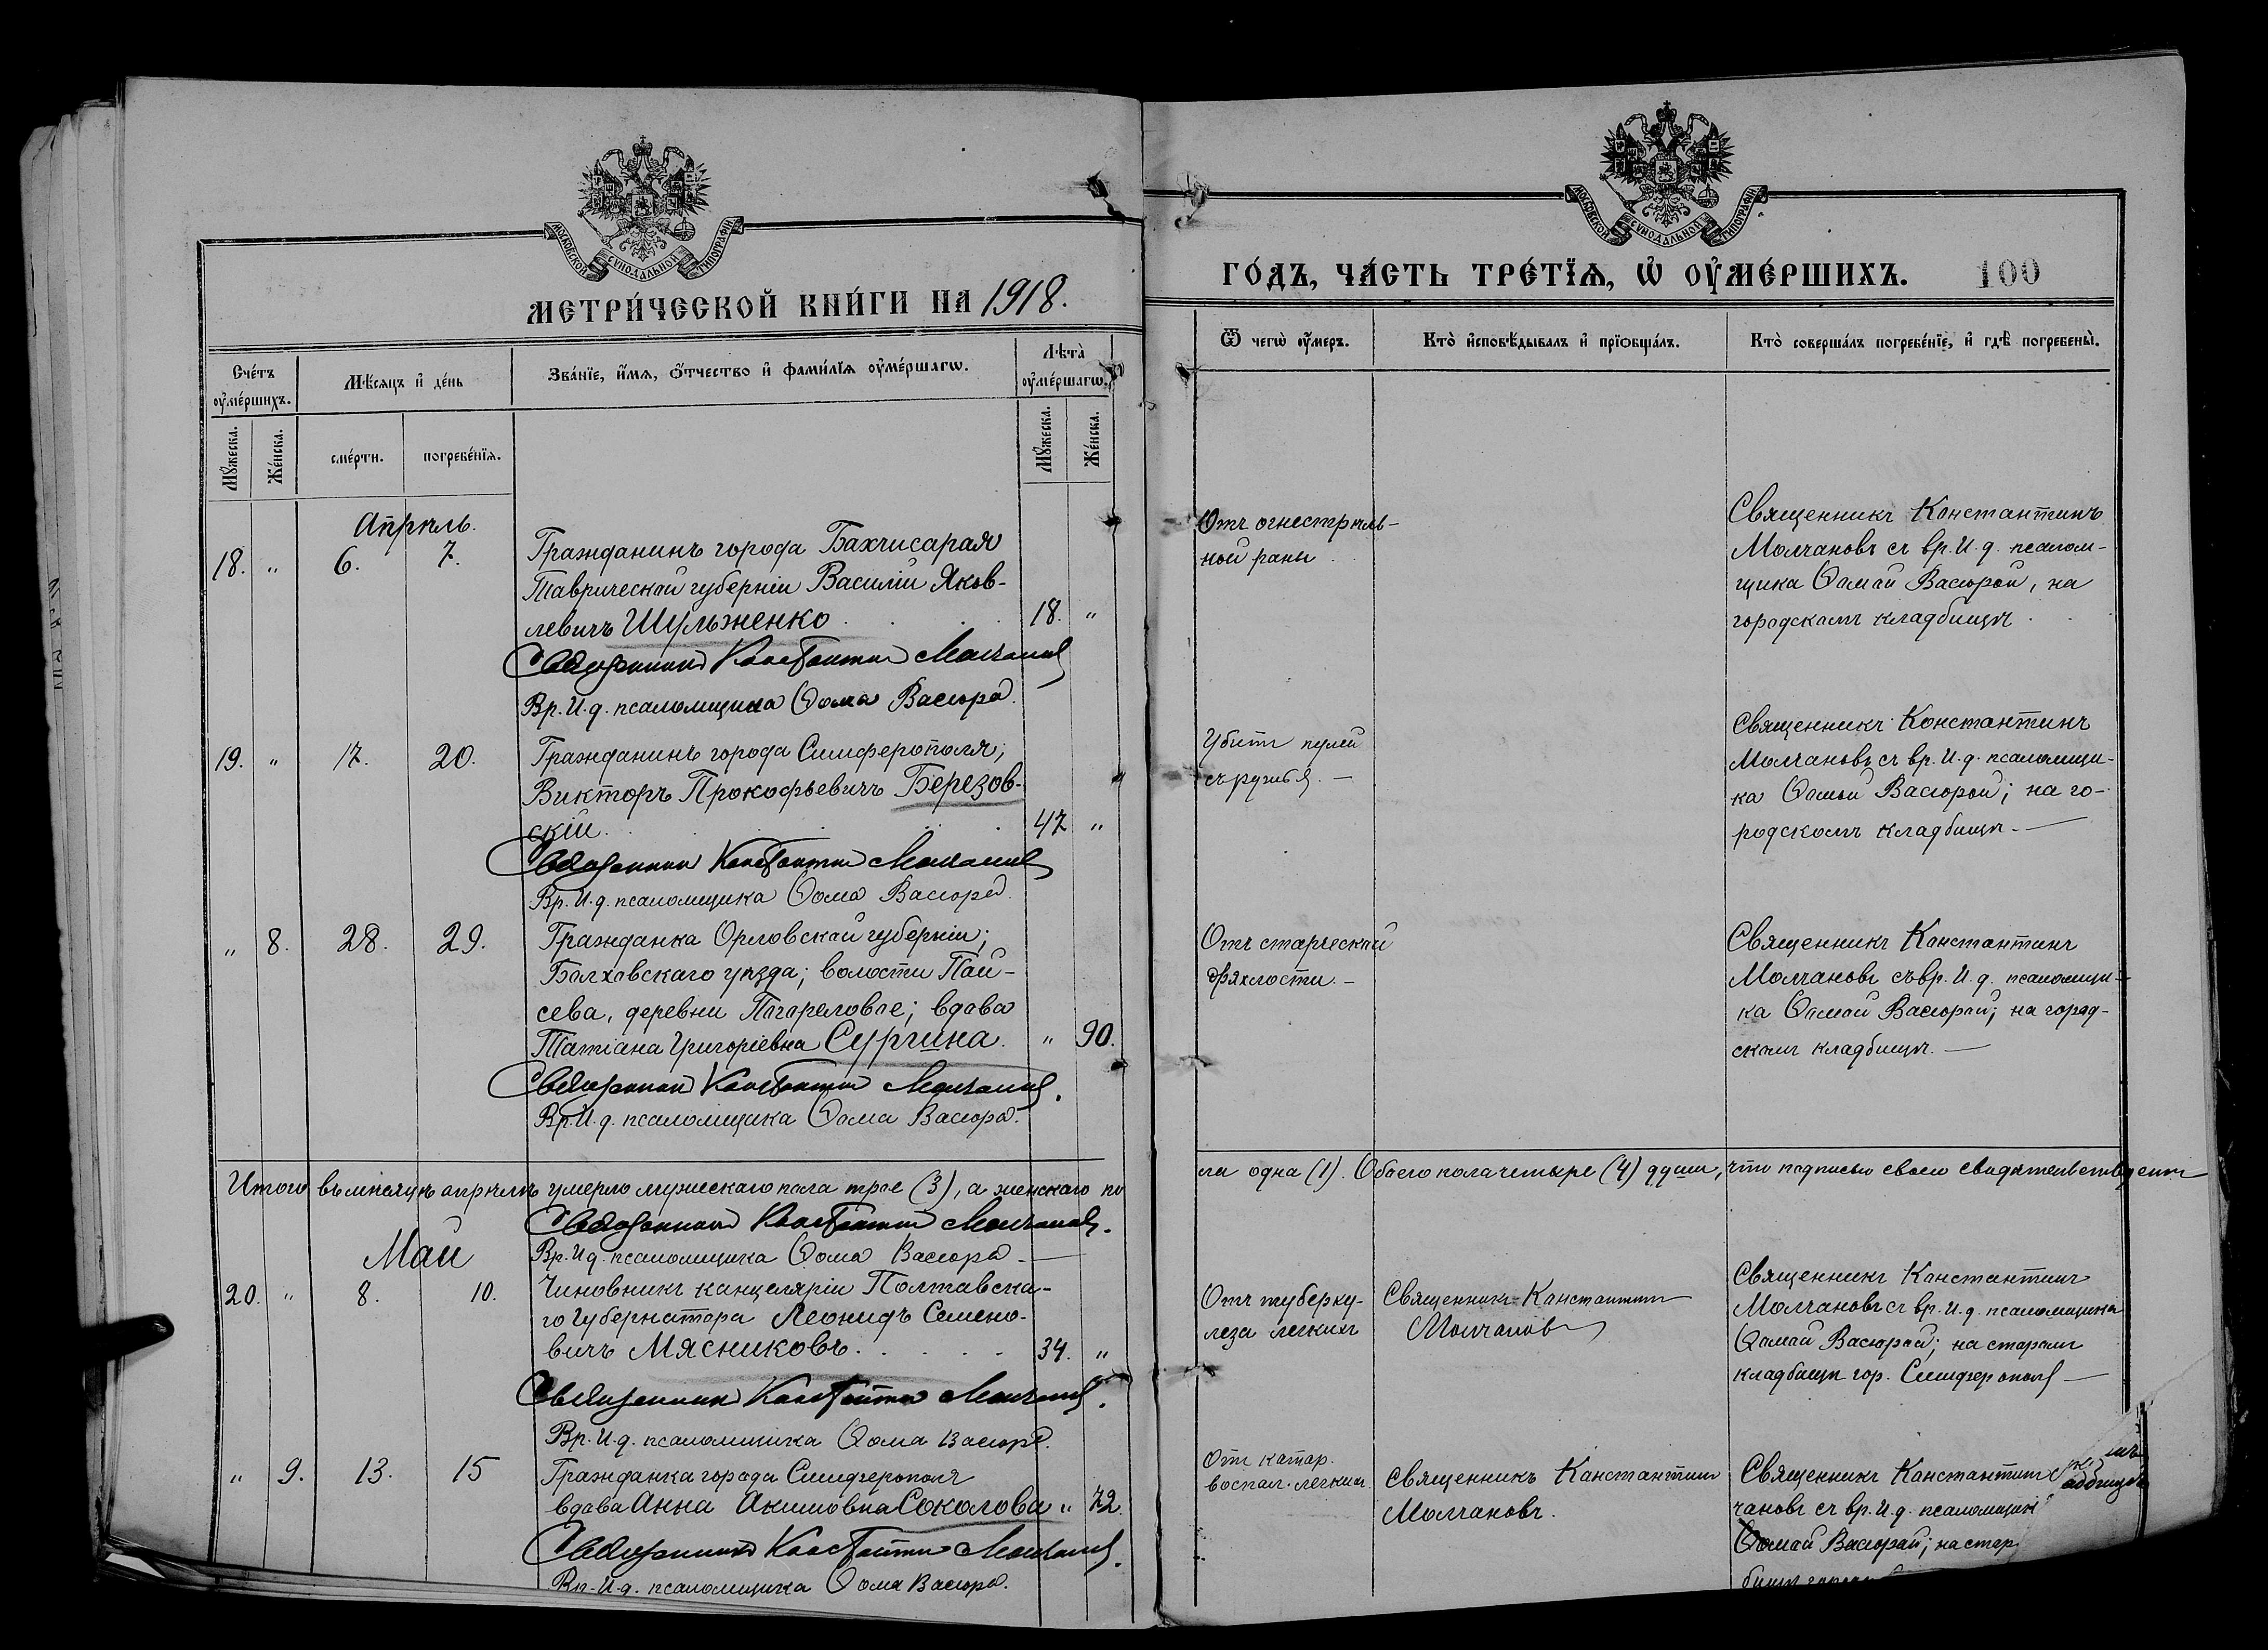 МОСКОВСКОЙ СѴНОДАЛЬНОЙ ТИПОГРАФІИ
МЕТРИ́ЧЕСКОЙ КНИ́ГИ НА 1918.
Сче́тъ оу҆ме́ршихъ.
Мѣ́сяцъ и҆ де́нь
Зва́нїе, и҆́мѧ, ѻ҆́тчество и҆ фами́лїѧ оу҆ме́ршагѡ.
Лѣ́та оу҆ме́ршагѡ.
Мꙋ́жеска.
Же́нска.
сме́рти.
погребе́нїѧ.
Мꙋ́жеска.
Же́нска.
Апрѣль.
18. „ 6. 7. Гражданинъ города Бахчисарая
Таврической губерніи Василій Яков-
левичъ Шульженко . . . . 18. „
Священникъ Константинъ Молчановъ
Вр. И. д. псаломщика Ѳома Васюра.
19. „ 17. 20. Гражданинъ города Симферополя;
Викторъ Прокофьевичъ Березов-
скій . . . . 47 „
Священникъ Константинъ Молчановъ
Вр. И. д. псаломщика Ѳома Васюра
„ 8. 28. 29. Гражданка Орловской губерніи;
Болховскаго уѣзда; волости Пай-
сева, деревни Погореловое; вдова
Татіана Григоріевна Сургина. „ 90.
Священникъ Константинъ Молчановъ.
Вр. И. д. псаломщика Ѳома Васюра.
Итого въ мѣсяцѣ апрѣлѣ умерло мужескаго пола трое (3), а женскаго по
Священникъ Константинъ Молчановъ.
Май
Вр. И д. псаломщика Ѳома Васюра –
20. „ 8. 10. Чиновникъ канцеляріи Полтавска-
го Губернатора Леонидъ Семено-
вичъ Мясниковъ . . . . 34. „
Священникъ Константинъ Молчановъ.
Вр. И. д. псаломщика Ѳома Васюра.
„ 9. 13. 15 Гражданка города Симферополя
вдова Анна Акимовна Соколова „ 72.
Священникъ Константинъ Молчановъ.
Вр. И. д. псаломщика Ѳома Васюра.
МОСКОВСКОЙ СѴНОДАЛЬНОЙ ТИПОГРАФІИ
ГО́ДЪ, ЧА́СТЬ ТРЕ́ТЇѦ, Ѡ҆ ОУ҆МЕ́РШИХЪ. 100
Ѿ чегѡ̀ оу҆́меръ.
Кто̀ и҆сповѣ́дывалъ и҆ прїѡбща́лъ.
Кто̀ соверша́лъ погребе́нїе, и҆ гдѣ̀ погребены̀.
Отъ огнестрѣль-
ной раны .
Священникъ Константинъ
Молчановъ съ вр. И. д. псалом-
щика Ѳомой Васюрой, на
городскомъ кладбищѣ .
Убитъ пулей
съ ружья. –
Священникъ Константинъ
Молчановъ съ вр. И. д. псаломщи-
ка Ѳомой Васюрой; на го-
родскомъ кладбищѣ. –
Отъ старческой
дряхлости. –
Священникъ Константинъ
Молчановъ съ вр. И. д. псаломщи-
ка Ѳомой Васюрой; на город-
скомъ кладбищѣ. –
ла одна (1). Обоего пола четыре (4) души, что подписью своею свидѣтельствуемъ
Отъ туберку-
леза легкихъ
Священникъ Константинъ
Молчановъ
Священникъ Константинъ
Молчановъ съ вр. И. д. псаломщика
Ѳомой Васюрой; на старомъ
кладбищѣ гор. Симферополя –
От катар.
воспал. легкихъ
Священникъ Константинъ
Молчановъ.
Священникъ Константинъ
чановъ съ вр. И. д. псаломщик
Ѳомой Васюрой; на стар